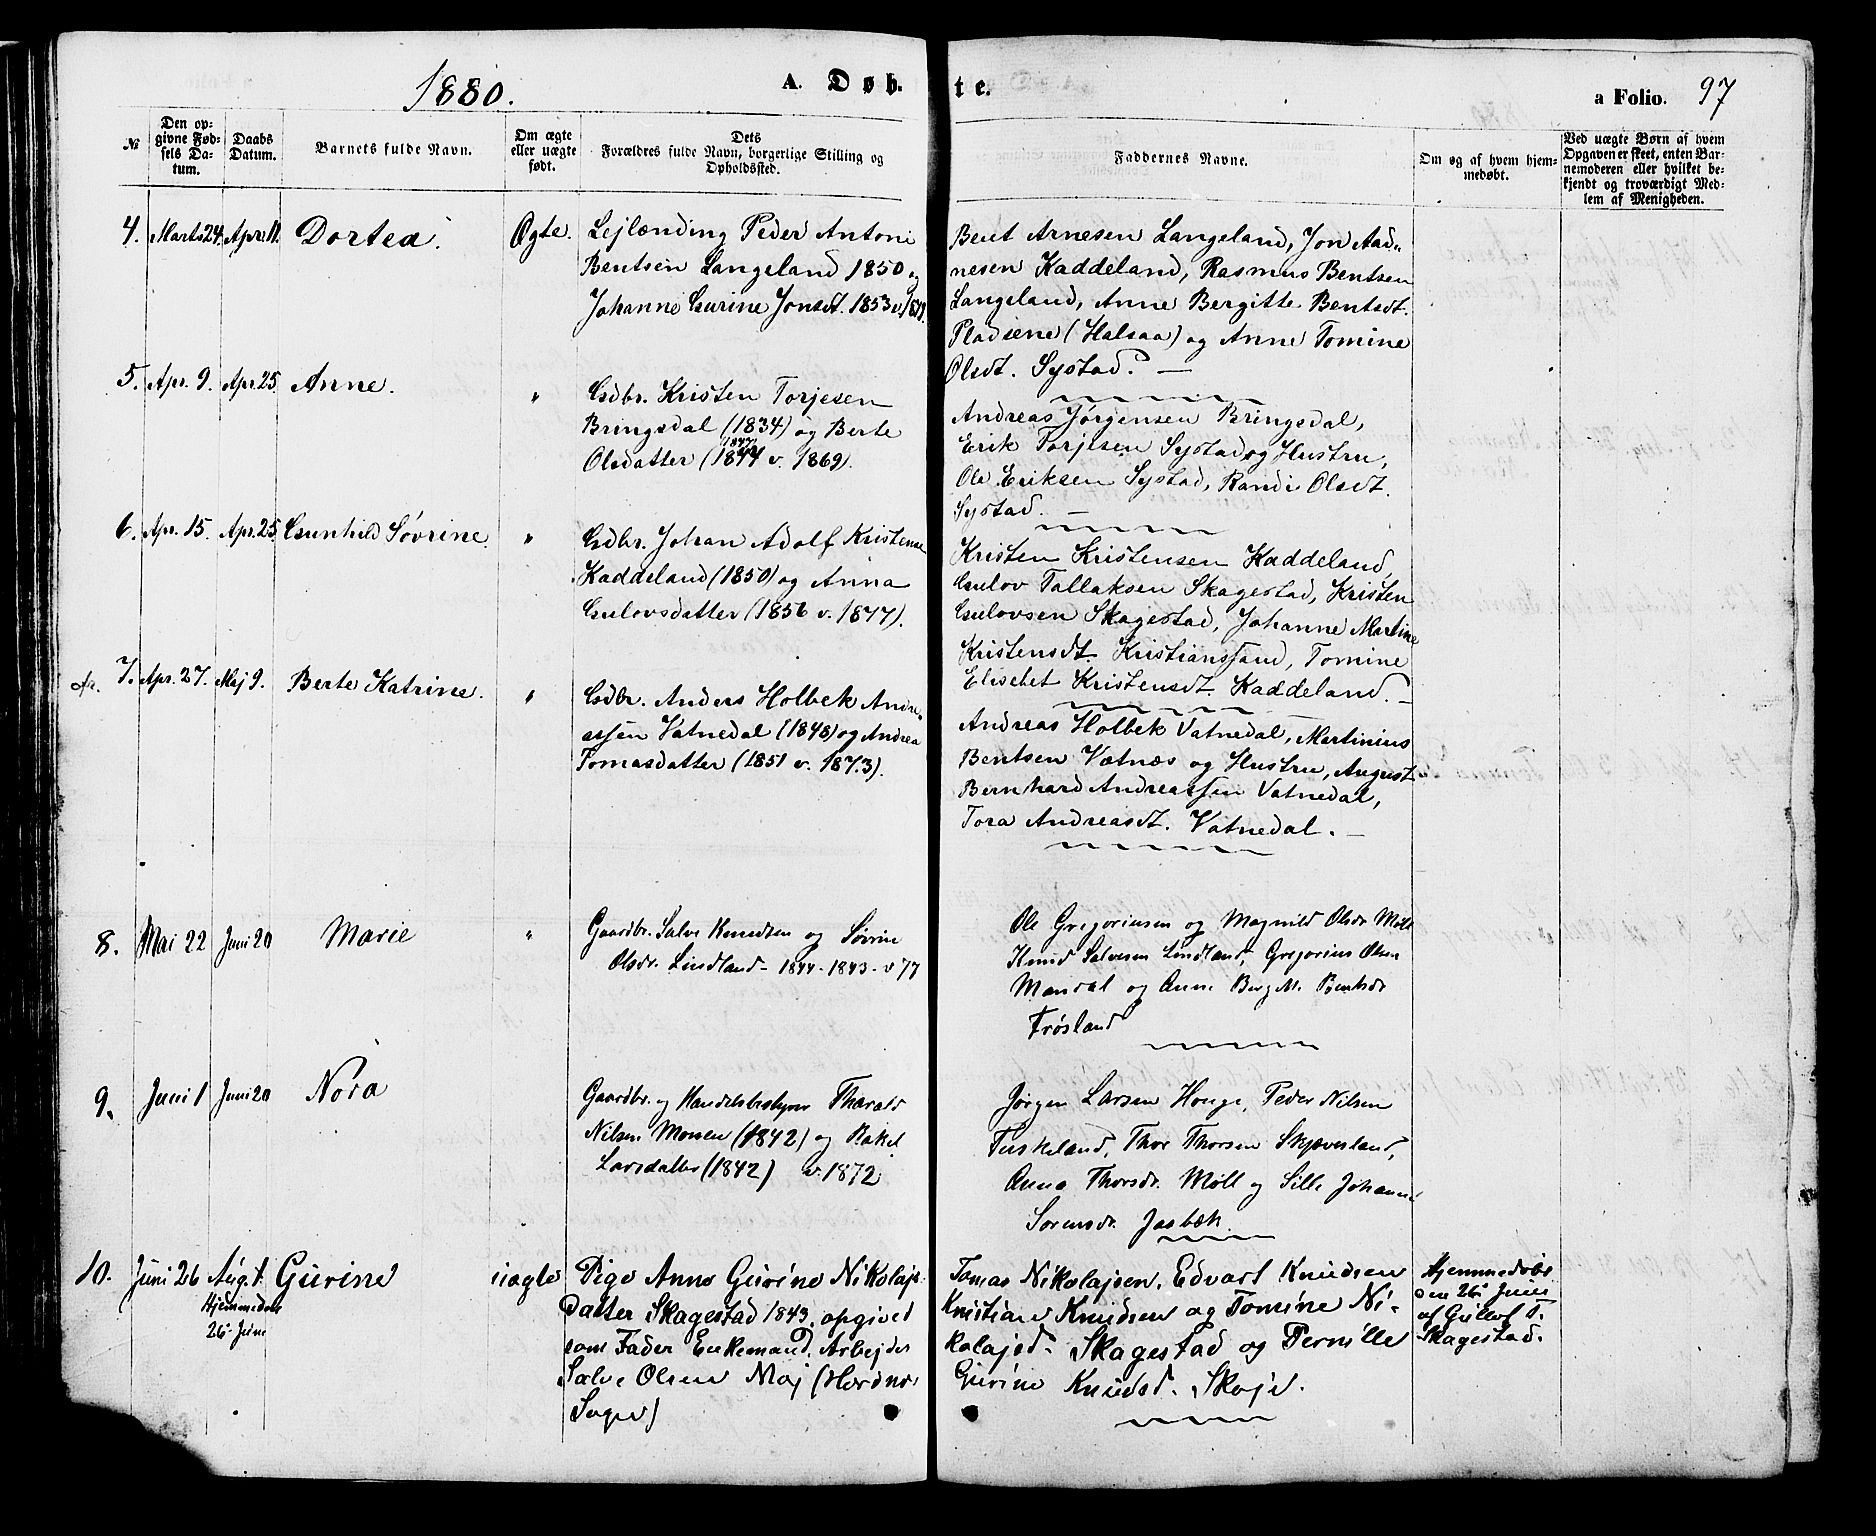 1880.
A. Døb-
te.
a Folio. 97
№
Den op-
givne Fød-
sels Da-
tum.
Daabs
Datum.
Barnets fulde Navn.
Om ægte
eller uægte
født.
Dets
Forældres fulde Navn, borgerlige Stilling og
Opholdssted.
Faddernes Navne.
Om og af hvem hjem-
medøbt.
Ved uægte Børn af hvem
Opgaven er skeet, enten Bar-
nemoderen eller hvilket be-
kjendt og troværdigt Med-
lem af Menigheden.
4. Marts 24. Apr. 11. Dortea. Øgte.
Lejlænding Peder Antoni
Bentsen Langeland 1850 og
Johanne Gurine Jonsdt. 1853 v.
Bent Arnesen Langeland, Jon Aad-
nesen Kaddeland, Rasmus Bentsen
Langeland, Anne Bergitte Bentsdt.
Pladsene (Halsaa) og Anne Tomine
Olsdt. Systad. —
5. Apr. 9. Apr. 25. Anne. "
Gdbr. Kristen Torjesen
Bringsdal (1834) og Berte
1847
Olsdatter (1844 v. 1869).
Andreas Jørgensen Bringsdal,
Erik Torjesen Systad og Hustru,
Ole Eriksen Systad, Randi Olsdt.
Systad. —
6. Apr. 15. Apr. 25. Gunhild Sövrine. "
Gdbr. Johan Adolf Kristensen
Kaddeland (1850) og Anna
Gulovsdatter (1856 v. 1877).
Kristen Kristensen Kaddeland,
Gulov Tallaksen Skagestad, Kristen
Gulovsen Skagestad, Johanne Martine
Kristensdt. Kristianssand, Tomine
Elisebet Kristensdt. Kaddeland. —
7. Apr. 27. Maj 9. Berte Katrine. "
Gdbr. Anders Holbek Andre-
assen Vatnedal (1848) og Andrea
Tomasdatter (1851 v. 1873).
Andreas Holbek Vatnedal, Martinius
Bentsen Vatnes og Hustru, August
Bernhard Andreassen Vatnedal,
Tora Andreasdt. Vatnedal. —
8. Mai 22 Juni 20 Marie "
Gaardbr. Salve Knudsen og Sövrine
Olsdr. Lindland - 1844 - 1843 - v 77
Ole Gregoriusen og Magnild Olsdr Möll
Knud Salvesen Lindland, Gregorius Olsen
Mandal og Anne Berg M. Bentsdr
Frösland
9. Juni 1 Juni 20 Nora
Gaardbr. og Handelsbestyrer Tharald
Nilsen Monen (1842) og Rakel
Larsdatter (1842) v. 1872
Jørgen Larsen Houge, Peder Nilsen
Tuskeland, Thor Thorsen Skjævesland,
Anna Thorsdr. Möll og Sille Johanne
Sørensdr. Jaabæk.
10. Juni 26 Aug. 1. Gurine uægte
Hjemmedøbt
26. Juni
Pige Anne Gurine Nikolajs-
datter Skagestad 1843, opgivet
som Fader Enkemand, Arbejder
Salve Olsen Maj (
Sogn)
Tomas Nikolajsen, Edvart Knudsen
Kristiane Knudsen og Tomine Ni-
kolajsd. Skagestad og Pernille
Gurine Knudsd. Skoje.
Hjemmedøbt
den 26 Juni
af Gullof T.
Skagestad.